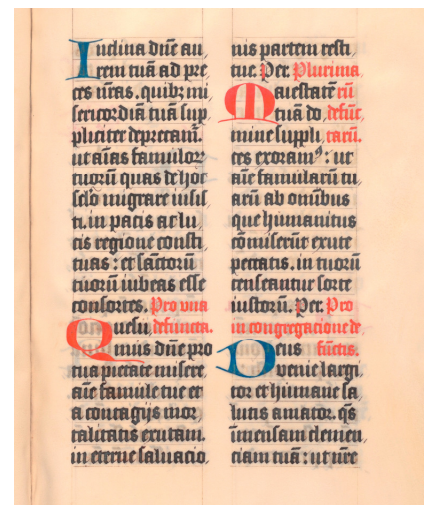 Inclina dn̄e au,
rem tuā ad pre
ces nr̄as. quibꝫ mi
sericordiā tuā sup
pliciter deprecam̄.
ut aīas famuloꝝ
tuoꝝ quas de hoc
sclō migrare iussis
ti. in pacis ac lu,
cis regione consti
tuas : et sāctorū
tuorū iubeas esse
consortes. Pro una
Quesu, defuncta.
mus dn̄e pro
tua pietate misere,
aīe famule tue et
a contagijs mor,
talitatis exutam.
in eterne saluacio,
nis partem resti,
tue. Per. Plurima
Maiestatē rū
tuā do, defūc,
mine suppli, tarū.
ces exoramꝰ : ut
aīe famularū tu
arū ab omībus
que humanitus
cōmiserūt exute
peccatis. in tuorū
censeantur sorte
iustorū. Per. Pro
in congregacione de
Deus fūctis.
venie largi,
tor et humane sa,
lutis amator. qs̄
īmensam clemen,
ciam tuā : ut nr̄e